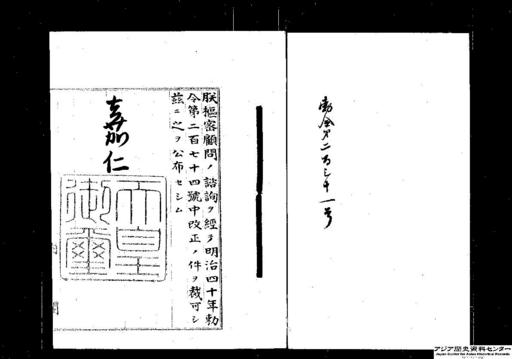 勅令第二百三十一号
朕樞密顧問ノ諮詢ヲ經テ明治四十年勅
令第二百七十四號中改正ノ件ヲ裁可シ
茲ニ之ヲ公布セシム
嘉仁
天皇
御璽
内閣
アジア歴史資料センター
Japan Center for Asian Historical Records